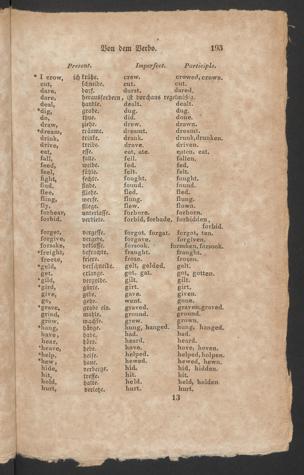 Von dem Verbo. 193
Present. Imperfect. Participle.
* I crow, ich krähe. crew. crowed, crown.
cut, schneide. cut. cut.
dare, darf. durst. dared.
dare, herausfordern, ist durchaus regelmäßig.
deal, handle. dealt. dealt.
*dig, grabe. dug. dug.
do, thue. did. done.
draw, ziehe. drew. drawn.
*dream, träume. dreamt. dreamt.
drink, trinke. drank. drunk, drunken.
drive, treibe. drave. driven.
eat, esse. eat, ate. eaten, eat.
fall, falle. fell. fallen.
feed, weide. fed. fed.
feel, fühle. felt. felt.
fight, fechte. fought. fought.
find, finde. found. found.
flee, fliehe. fled. fled.
fling, werfe. flung. flung.
fly, fliege. flew. flown.
forbear, unterlasse. forbore. forborn.
forbid, verbiete. forbid, forbade, forbidden,
forbid.
forget, vergesse. forgot, forgat. forgot, ten.
forgive, vergebe. forgave. forgiven.
forsake, verlasse. forsook. forsaken, forsook.
*freight, befrachte. fraught. fraught.
freeze, friere. froze. frozen.
*geld, verschneide. gelt, gelded. gelt.
get, erlange. got, gat. got, gotten.
*gild, vergolde. gilt. gilt.
*gird, gürte. girt. girt.
give, gebe. gave. given.
go, gehe. went. gone.
*grave, grabe ein. graved. graven, graved.
grind, mahle. ground. ground.
grow, wachse. grew. grown.
*hang, hänge. hung, hanged. hung, hanged.
have, habe. had. had.
hear, höre. heard. heard.
*heave, hebe. hove. hove, hoven.
*help, helfe. helped. helped, holpen.
*hew, haue. hewed. hewed, hewn.
hide, verberge. hid. hid, hidden.
hit, treffe. hit. hit.
hold, halte. held. held, holden
hurt, verletze. hurt. hurt.
13